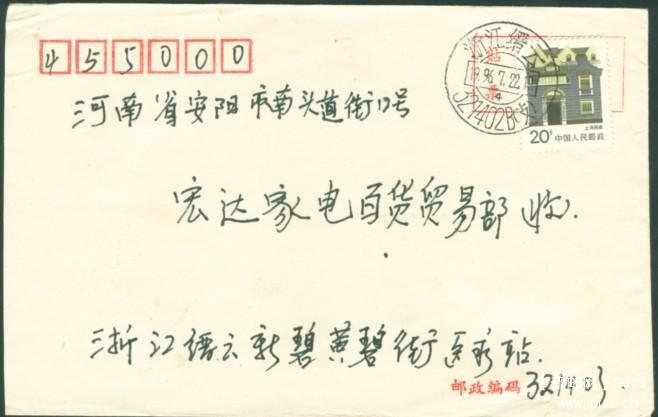 455000
河南省安阳市南头道街17号
宏达家电百货贸易部 收.
浙江缙云新碧黄碧街医疗站.
邮政编码
浙江缙云
1996.7.22
321402B
贴
票
20分 中国人民邮政
上海民居